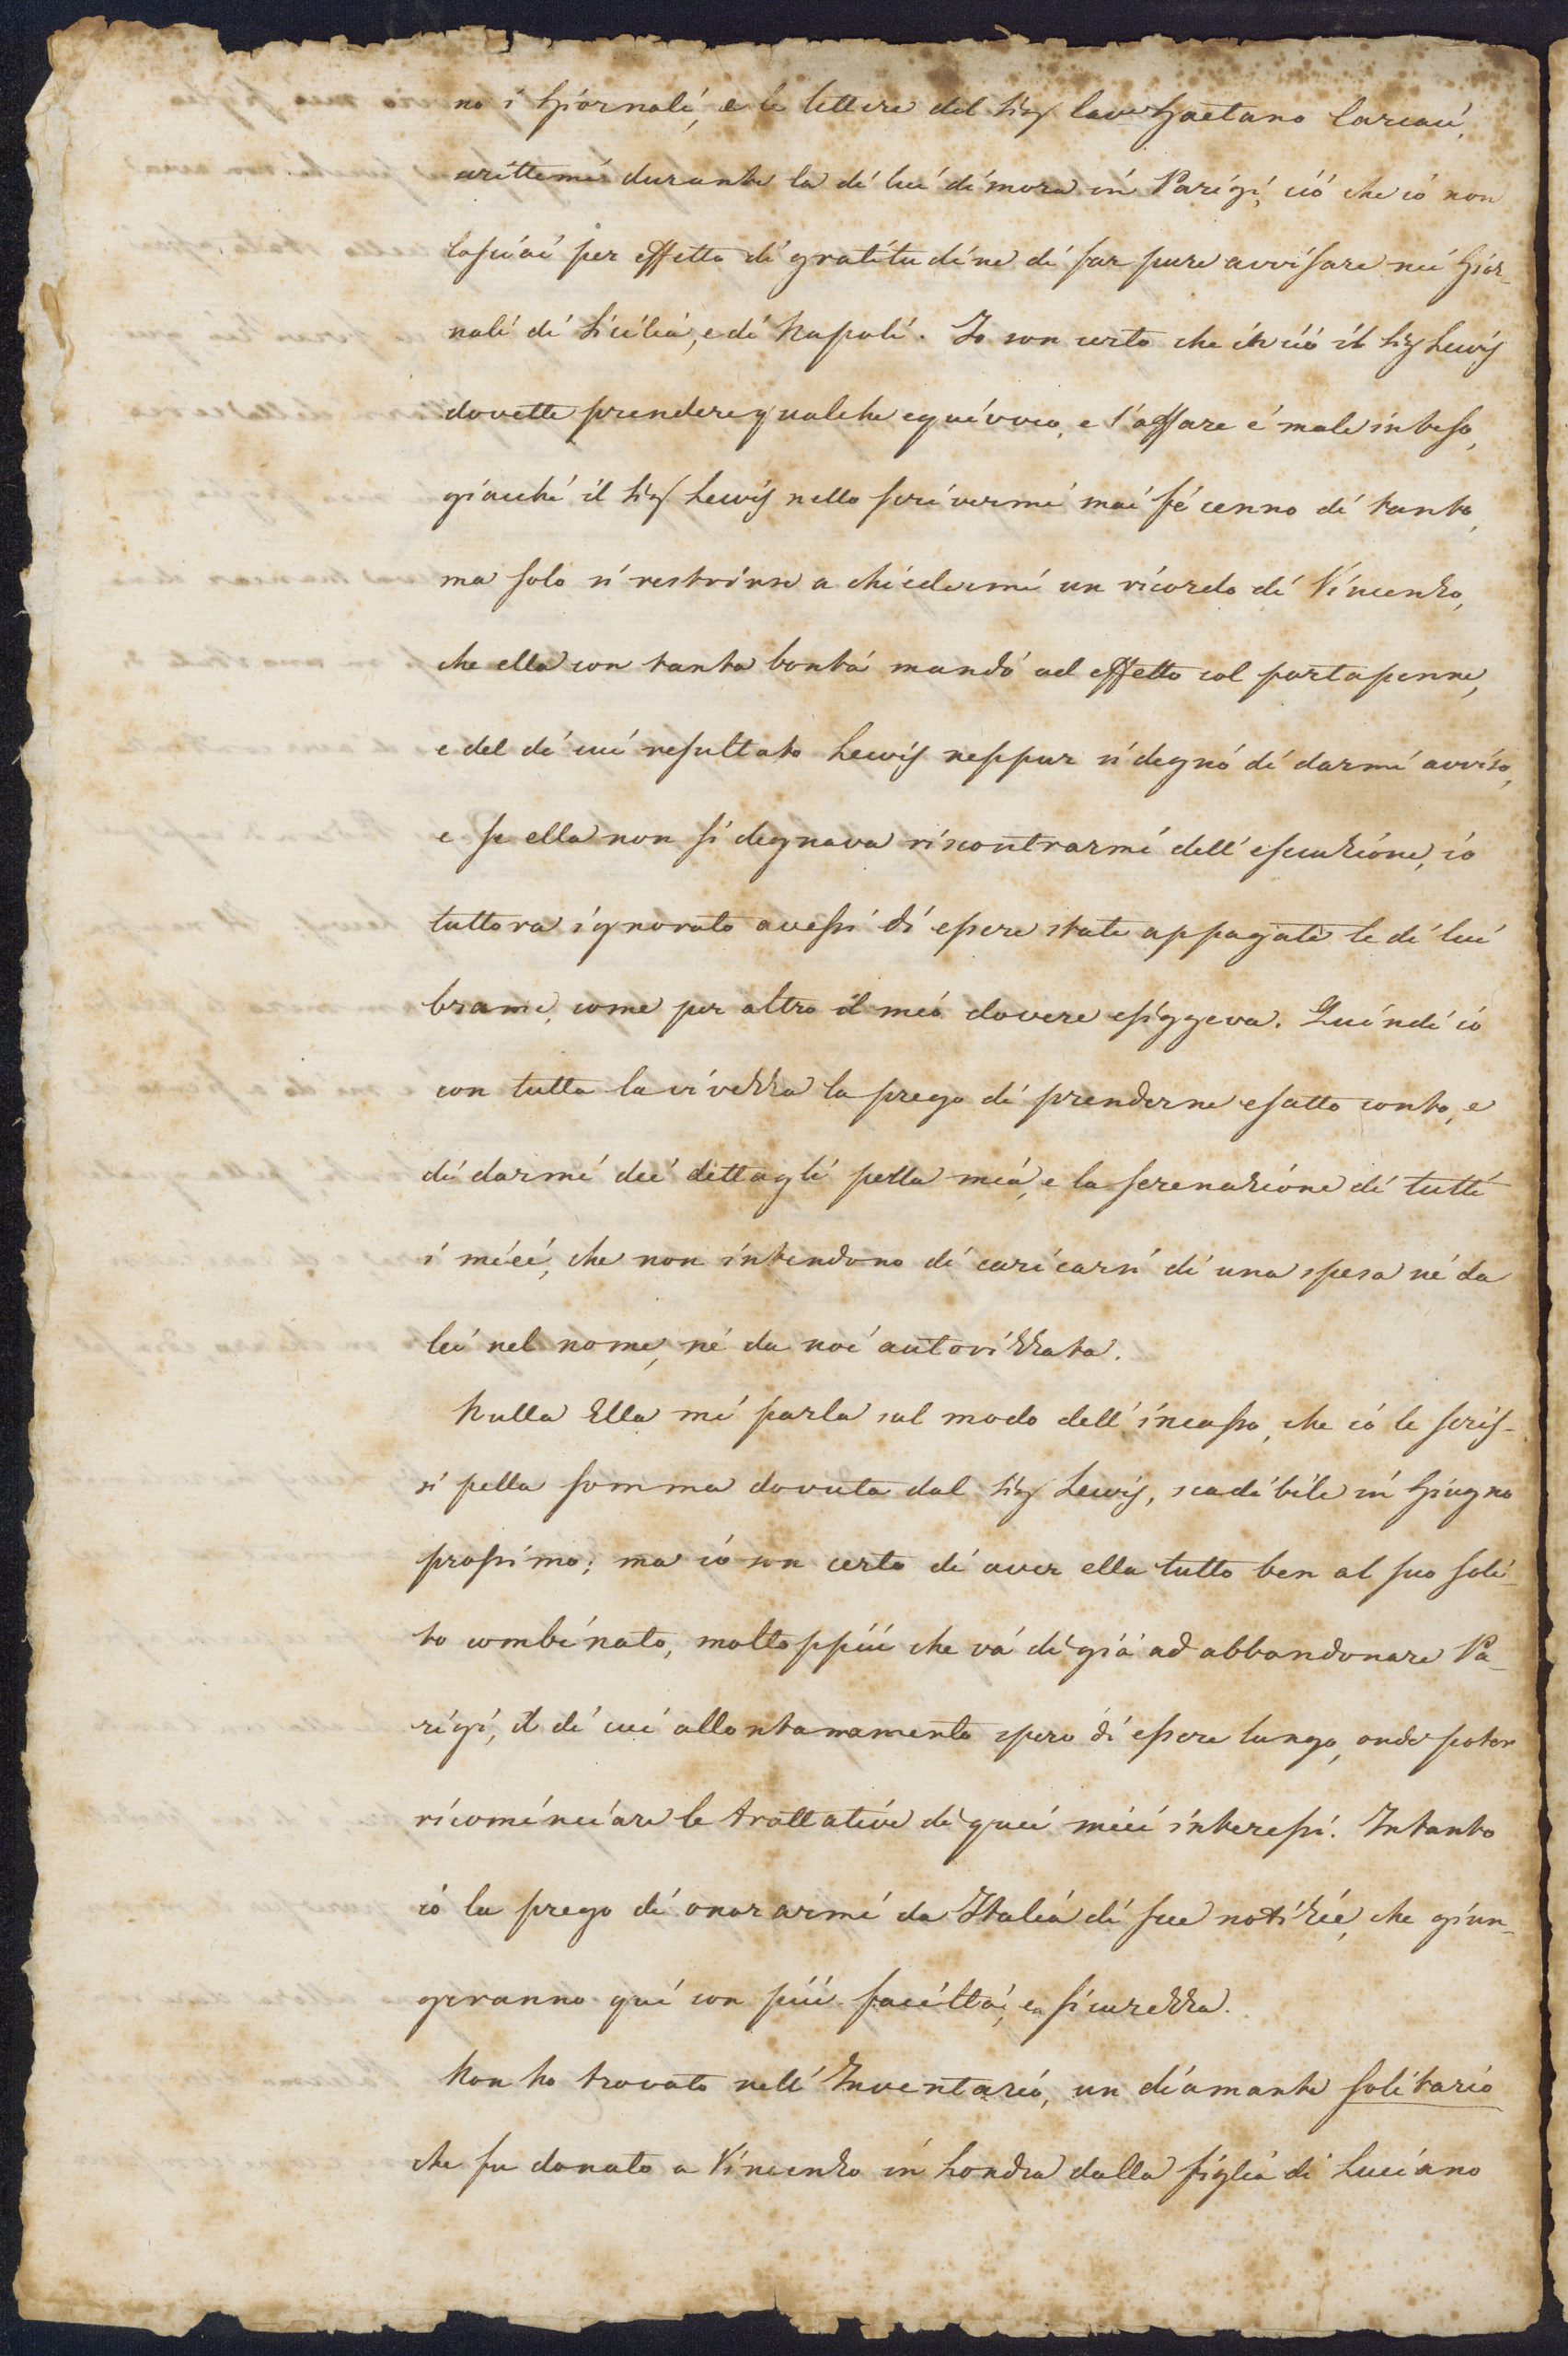 no i Giornali, e le lettere del Sig.r Cav.re Gaetano Carcaci,
crittemi durante la di lui dimora in Parigi, ciò che io non
lasciai per effetto di gratitudine di far pure avvisare nei Gior-
nali di Sicilia, e di Napoli. Io son certo che in ciò il Sig.r Lewis
dovette prendere qualche equivoco, e l'affare è male inteso,
giacchè il Sig.r Lewis nello scrivermi mai fè cenno di tanto,
ma solo si restrinse a chiedermi un ricordo di Vincenzo,
che ella con tanta bontà mandò ad effetto col portapenne,
e del di cui resultato Lewis neppur si degnò di darmi avviso,
e se ella non si degnava riscontrarmi dell'esecuzione, io
tuttora ignorato avessi di essere state appagate le di lui
brame, come per altro il mio dovere esiggeva. Quindi io
con tutta la vivezza la prego di prenderne esatto conto, e
di darmi dei dettagli pella mia, e la serenazione di tutti
i miei, che non intendono di caricarsi di una spesa nè da
lei nel nome, nè da noi autorizzata.
Nulla Ella mi parla sul modo dell'incasso, che io le scris-
si pella somma dovuta dal Sig.r Lewis, scadibile in Giugno
prossimo; ma io son certo di aver ella tutto ben al suo soli-
to combinato, molto ppiù che và di già ad abbandonare Pa-
rigi, il di cui allontanamento spero di essere lungo, onde poter
ricominciare le trattative di quei miei interessi. Intanto
io la prego di onorarmi da Italia di sue notizie, che giun-
geranno quì con più faciltà, e sicurezza.
Non ho trovato nell'Inventario, un diamante solitario
che fu donato a Vincenzo in Londra dalla figlia di Luciano